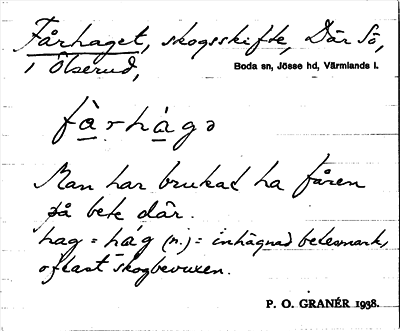 Fårhaget, skogsskifte, Där Sö,
i Ölserud,
Boda sn, Jösse hd, Värmlands l.
fà̱rhà̱gə
Man har brukat ha fåren
på bete där.
hag = hág (n.) = inhägnad betesmark,
oftast skogbevuxen.
P. O. GRANÉR 1938.